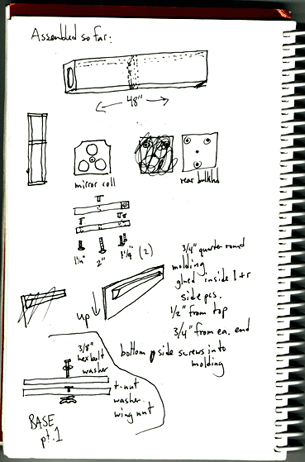 Assembled so far:
48"
mirror cell
rear bulkhd
1¼" 2" 1¼" (2)
3/4" quarter round
molding
glued inside l + r
side pcs.
1/2" from top
3/4" from ea. end
up
bottom side screws into
molding
3/8"
hex bolt
washer
t-nut
washer
wing nut
BASE
pt. 1